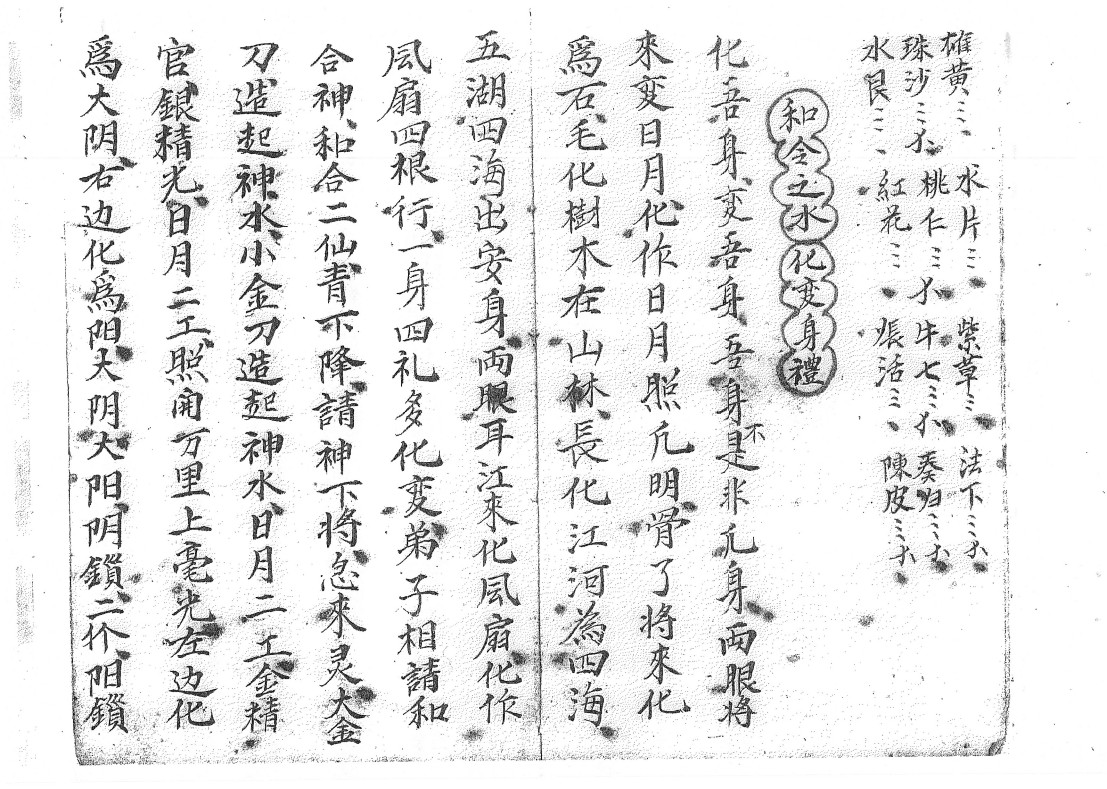 雄黄三 水片三 紫草三 法下三个
珠沙三个 桃仁三个 牛七三个 归三个
水艮二 紅花三 活三 陳皮三个
和合之水化变身禮
化吾身变吾身吾身不是非凢身两眼将
來变日月化作日月照凢明骨了将來化
爲石毛化樹木在山林長化江河為四海
五湖四海出安身两眼耳江來化風扇化作
風扇四根行一身四礼多化变弟子相請和
合神和合二仙青下降請神下将急來灵大金
刀造起神水小金刀造起神水日月二工金精
官銀精光日月二工照開万里上毫光左边化
爲大阴右边化爲阳大阴大阳阴鎖二个阳鎖